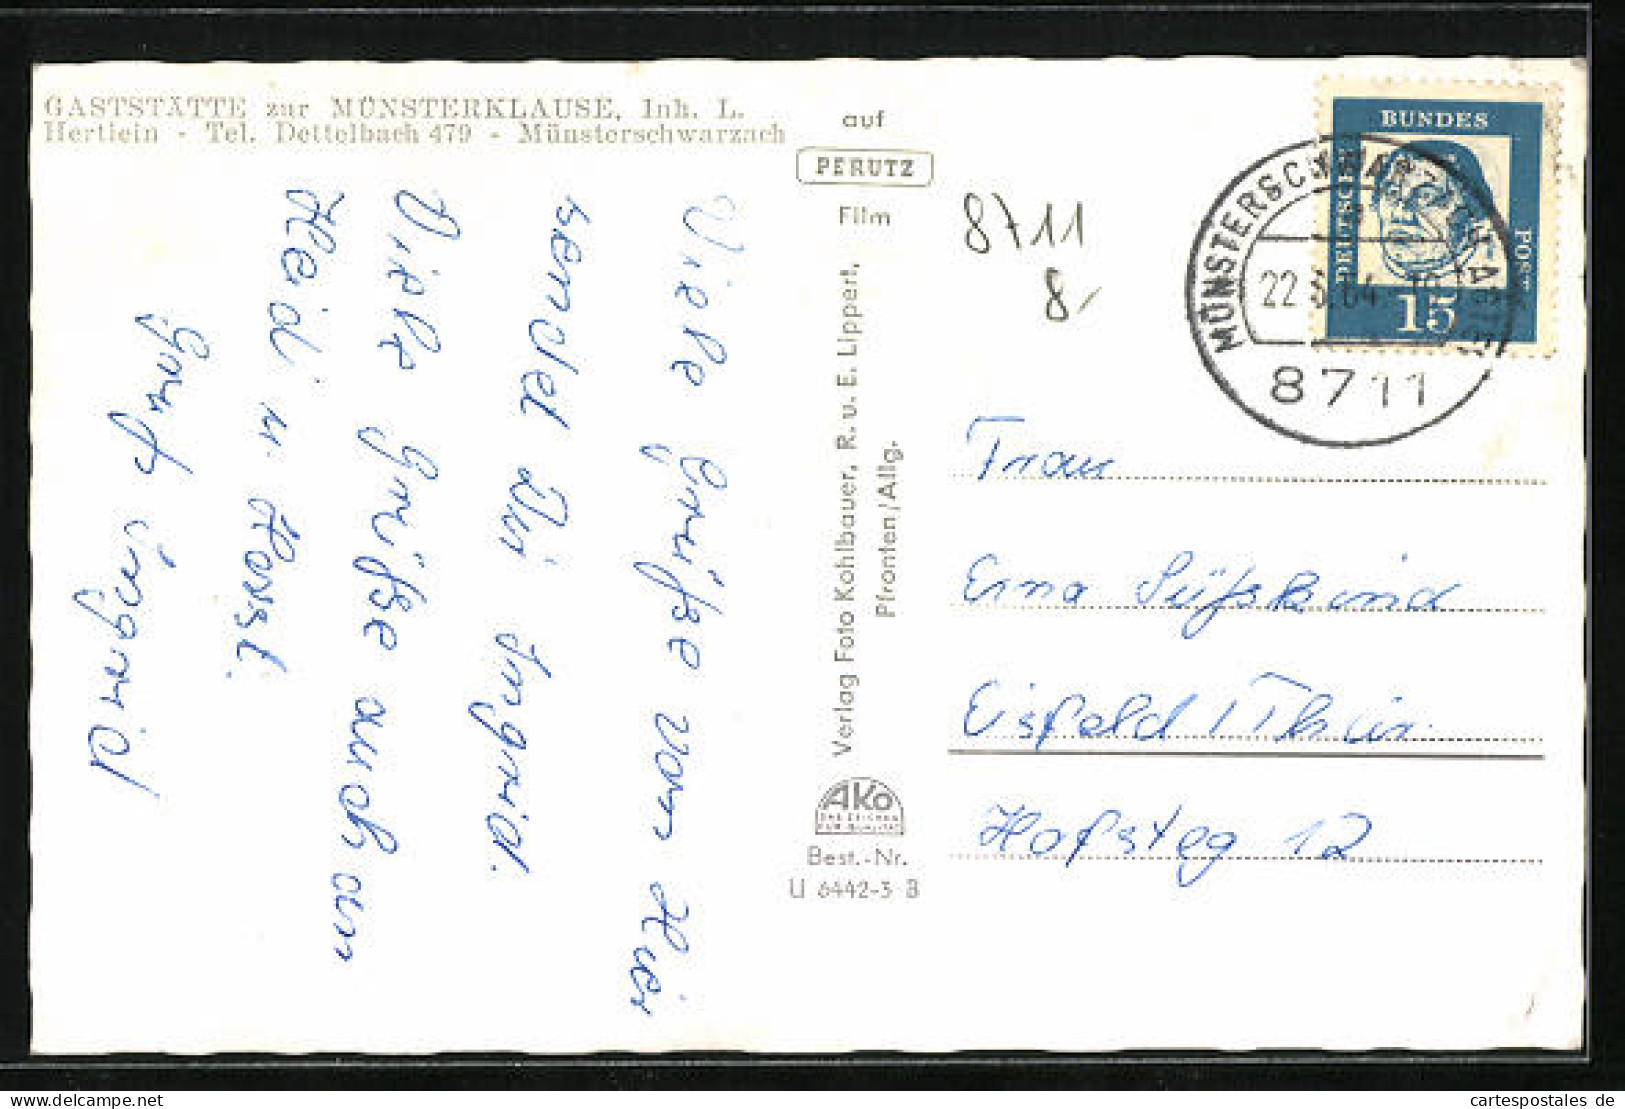 GASTSTÄTTE zur MÜNSTERKLAUSE, Inh. L.
Hertlein - Tel. Dettelbach 479 - Münsterschwarzach
Viele Grüße von Hier
sendet Dir Ingrid.
Viele Grüße auch an
Heidi u. Horst.
Gruß Ingrid
auf
PERUTZ
Film
Verlag Foto Kohlbauer, R. u. E. Lippert,
Pfronten/Allg.
AKO
DAS ZEICHEN
FÜR QUALITÄT
Best.-Nr.
U 6442-3 B
8711
8,
DEUTSCHE
BUNDES
POST
15
MÜNSTERSCHWARZACH ABTEI
8711
Frau
Erna Süßkind
Eisfeld / Thür.
Hofsteg 12
www.cartespostales.de